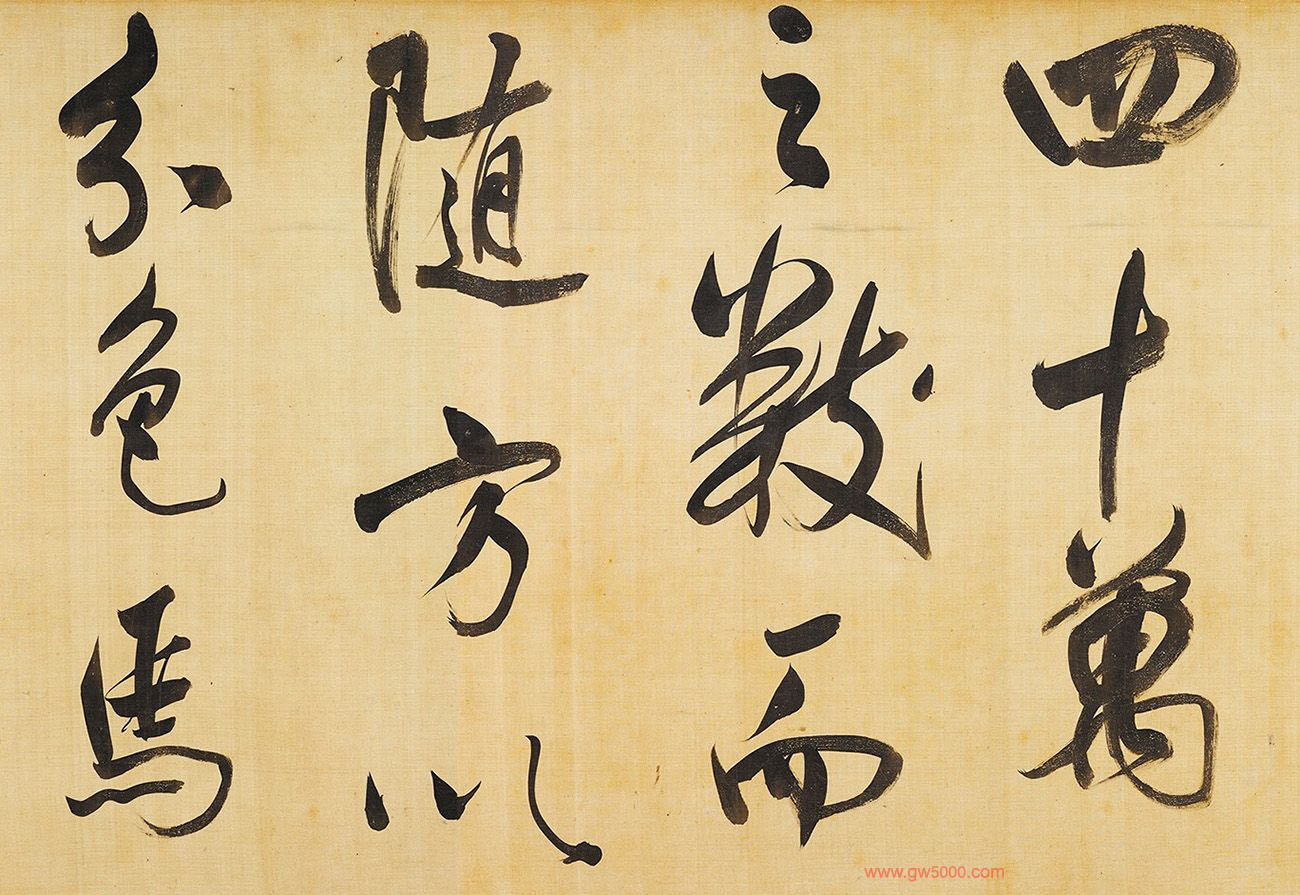 四十萬
之數而
随方以
分色馬
www.gw5000.com